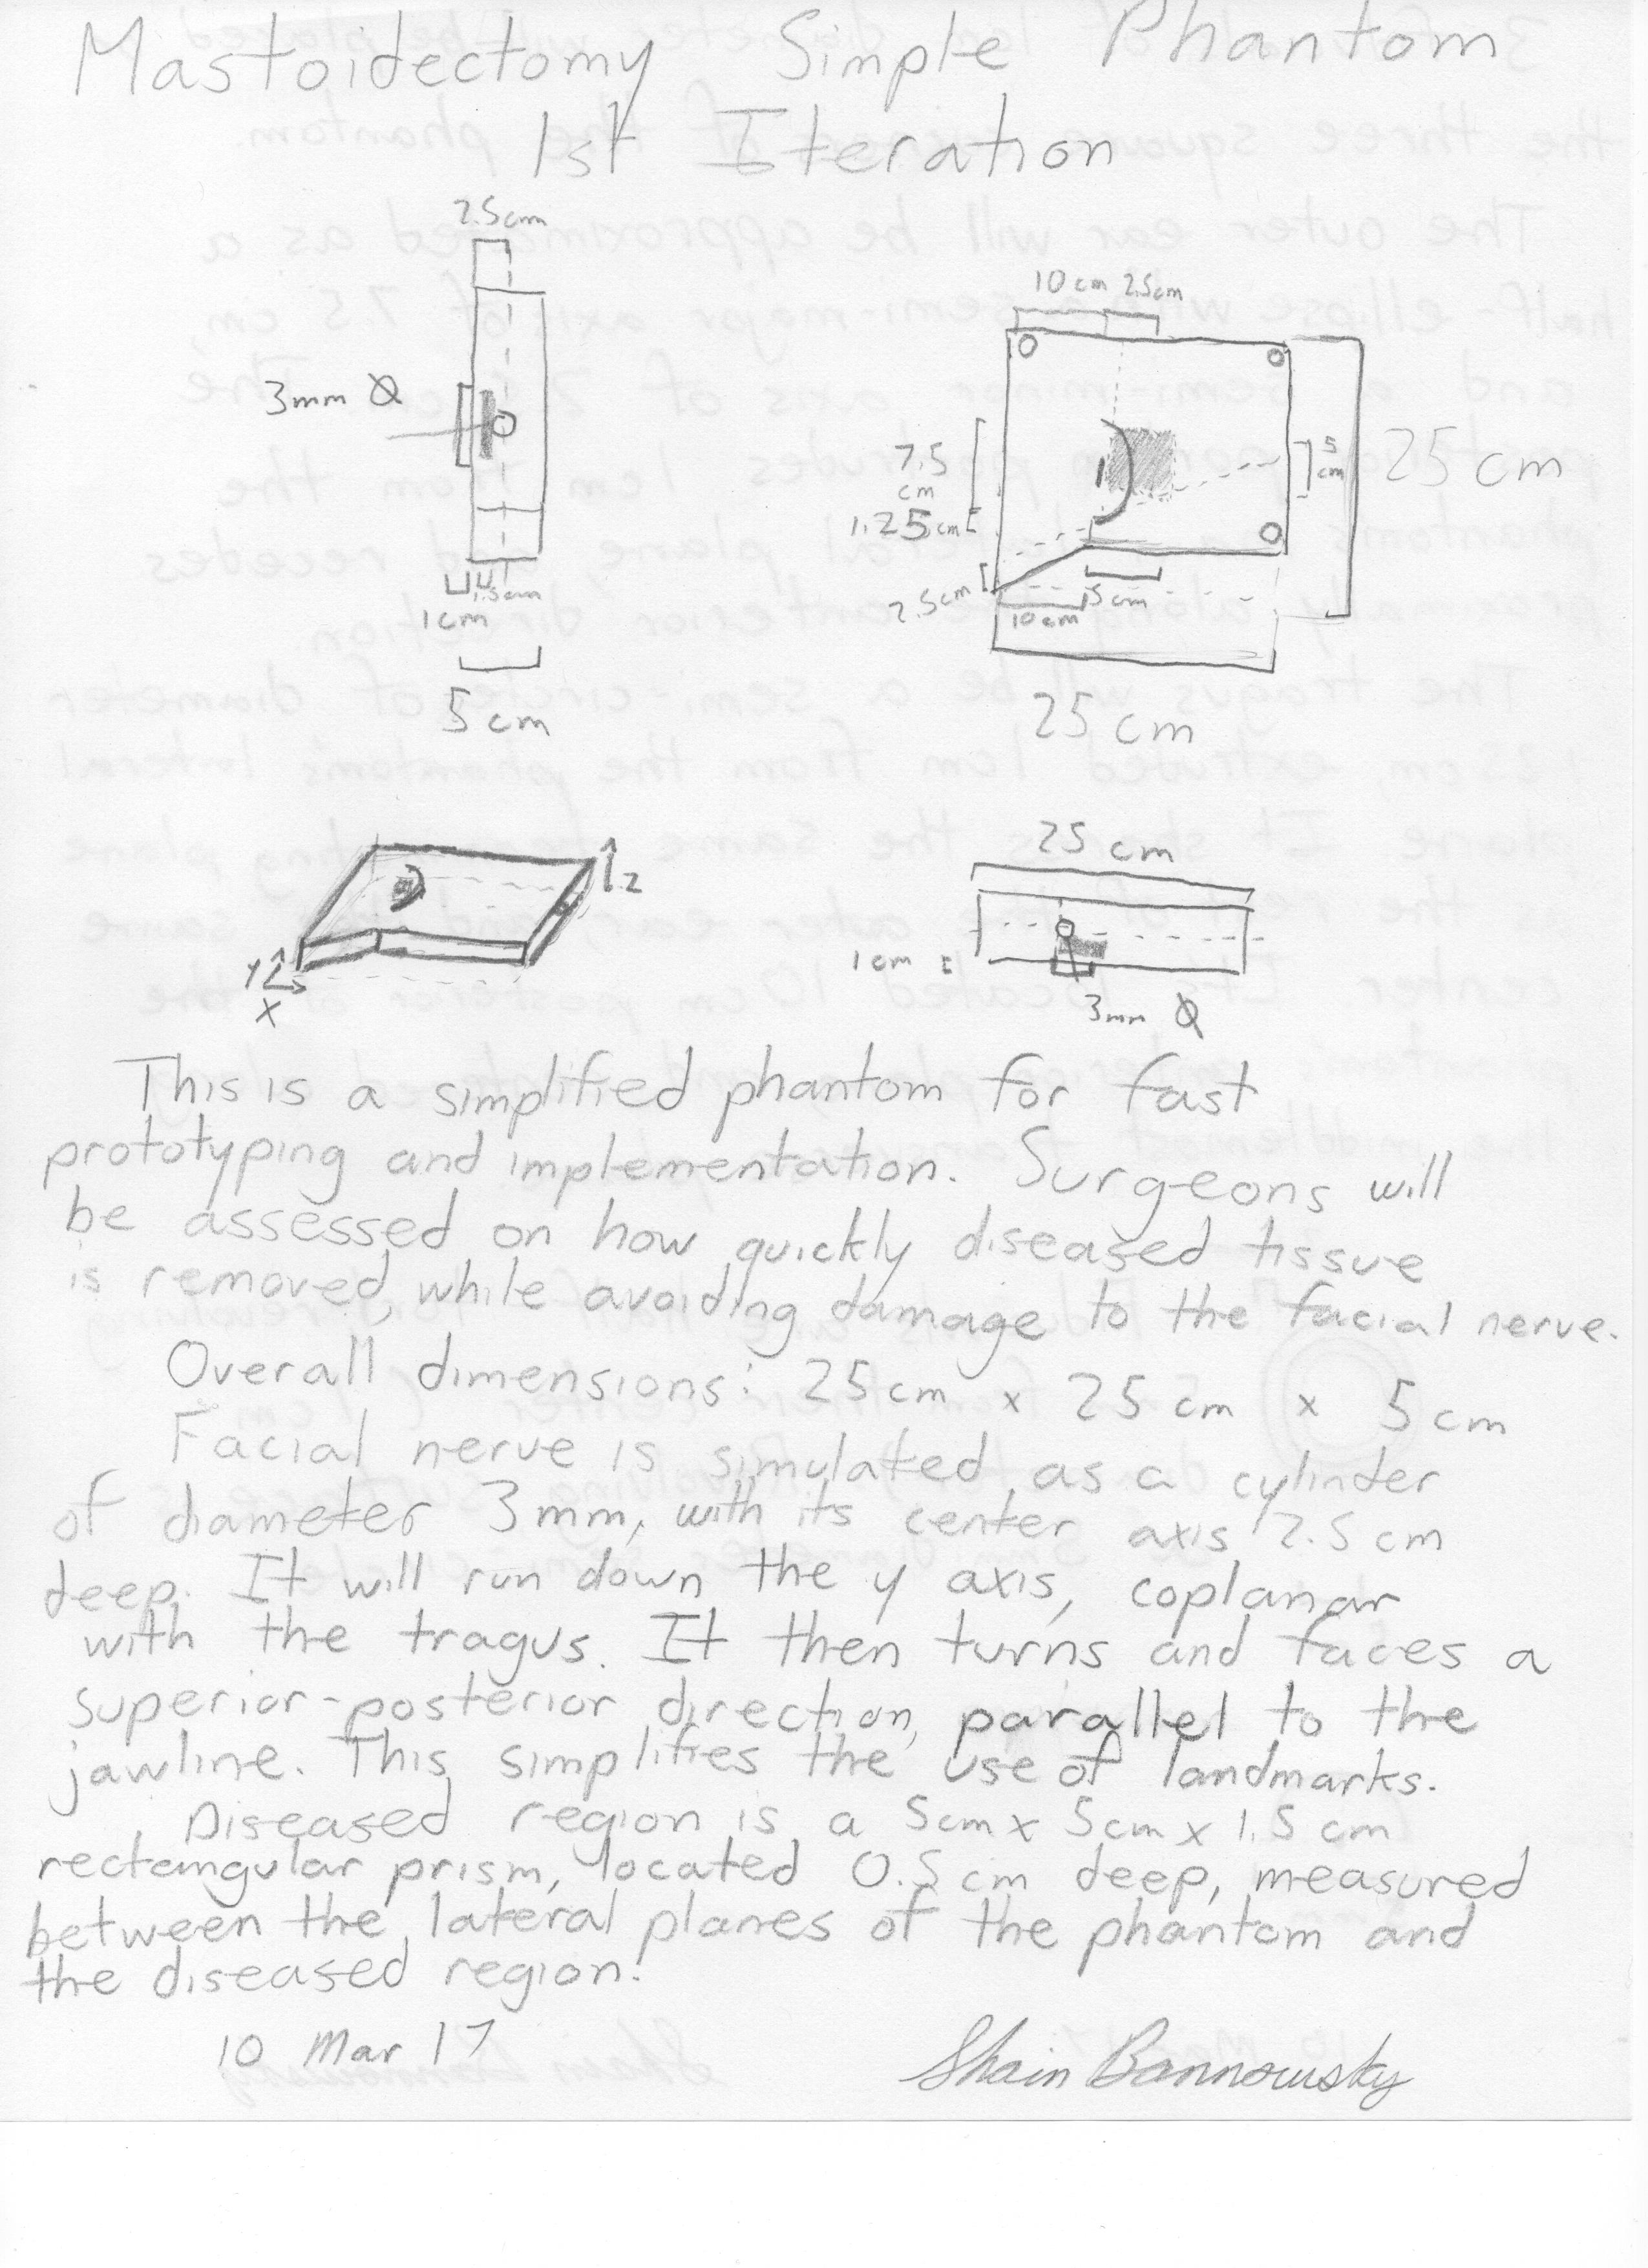 Mastoidectomy Simple Phantom
1st Iteration
2.5cm
3mm Ø
1.5cm
1cm
5 cm
10 cm 2.5cm
7.5
cm
1.25cm
5
cm
25 cm
2.5cm
10cm
5cm
25 cm
Z
Y
X
25 cm
1cm
3mm Ø
This is a simplified phantom for fast
prototyping and implementation. Surgeons will
be assessed on how quickly diseased tissue
is removed, while avoiding damage to the facial nerve.
Overall dimensions: 25cm x 25 cm x 5cm
Facial nerve is simulated as a cylinder
of diameter 3mm, with its center axis 2.5 cm
deep. It will run down the y axis, coplanar
with the tragus. It then turns and faces a
superior-posterior direction, parallel to the
jawline. This simplifies the use of landmarks.
Diseased region is a 5cm x 5cm x 1.5 cm
rectangular prism, located 0.5cm deep, measured
between the lateral planes of the phantom and
the diseased region.
10 Mar 17
Shain Bannowsky